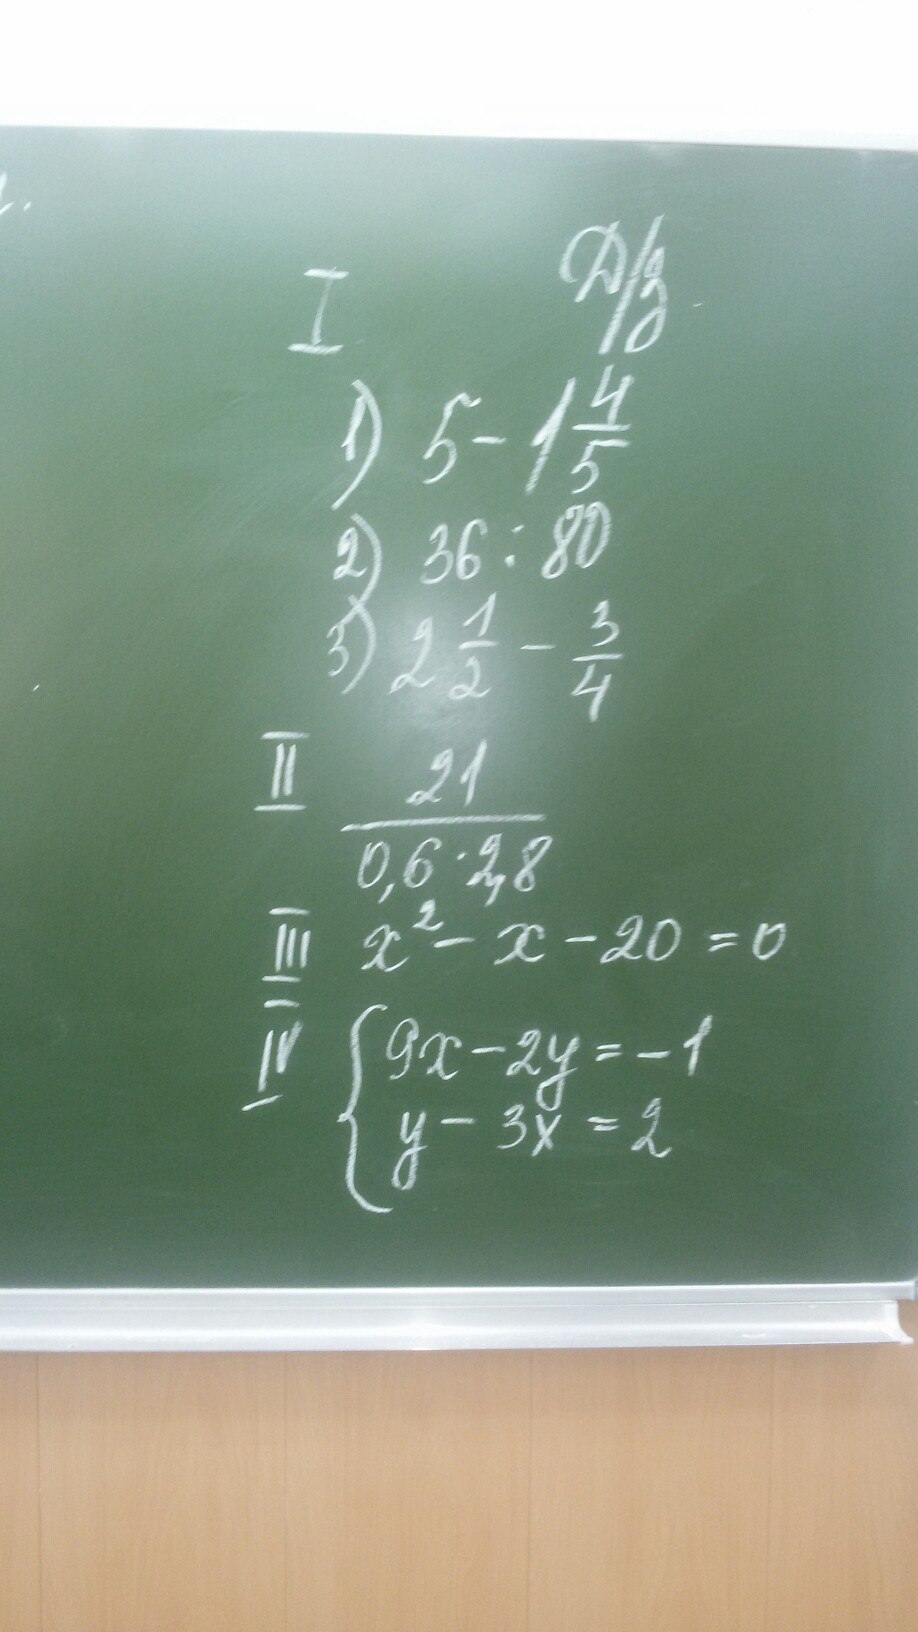 I Д/з
1) 5 - 1 4/5
2) 36 : 80
3) 2 1/2 - 3/4
II 21/(0,6 · 2,8)
III x² - x - 20 = 0
IV { 9x - 2y = -1
y - 3x = 2